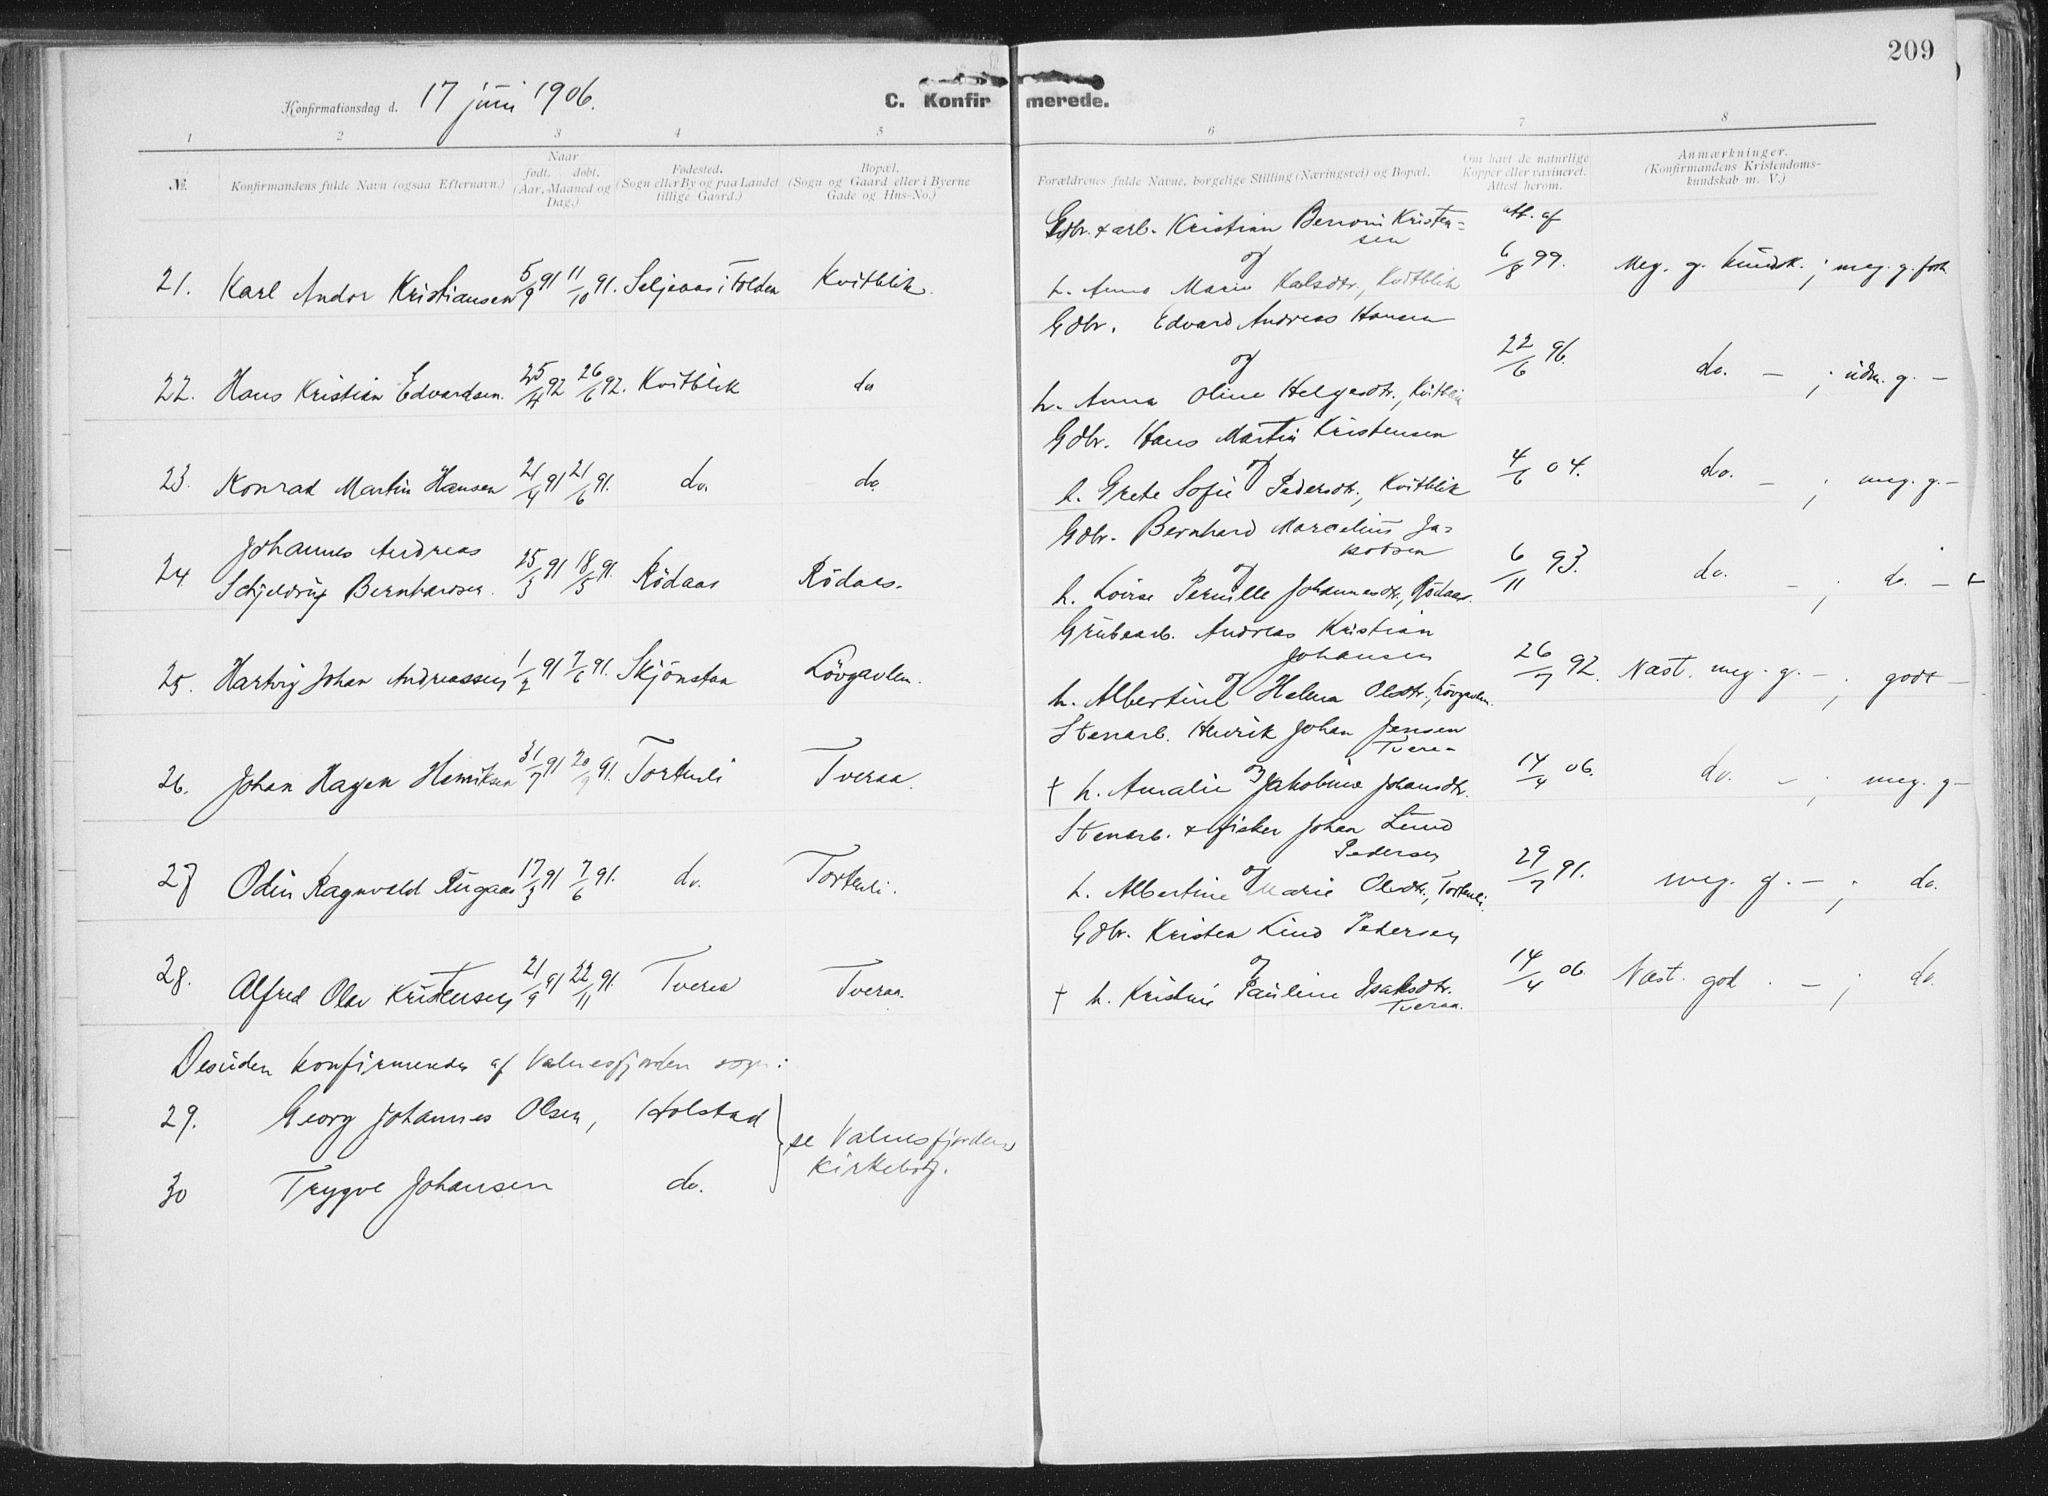 209
Konfirmationsdag d. 17 juni 1906.
C. Konfirmerede.
1 2 3 4 5 6 7 8
№. Konfirmandens fulde Navn (ogsaa Efternavn.) Naar født. døbt. (Aar, Maaned og Dag.) Fødested. (Sogn eller By og paa Landet tillige Gaard.) Bopæl. (Sogn og Gaard eller i Byerne Gade og Hus-No.) Forældrenes fulde Navne, borgelige Stilling (Næringsvei) og Bopæl. Om havt de naturlige Kopper eller vaxineret. Attest herom. Anmærkninger. (Konfirmandens Kristendoms-kundskab m. V.)
Gdbr. & arb. Kristian Benoni Kristen=
sen
og
att. af
21. Karl Andor Kristiansen 5/9 91 11/10 91. Seljeaas i Folden Kvitblik. h. Anna Marie Karlsdtr., Kvitblik 6/8 99. Meg. g. kundsk. ; meg. g. forh
Gdbr. Edvard Andreas Hansen
og
22. Hans Kristian Edvardsen. 25/4 92 26/6 92. Kvitblik do h. Anna Oline Helgesdtr., Kvitblik 22/6 96. do. — ; udm. g. —
Gdbr. Hans Martin Kristensen
og
23. Konrad Martin Hansen 21/4 91 21/6 91. do. do. h. Grete Sofie Pedersdtr., Kvitblik 4/6 04. do. — ; meg. g. —
Gdbr. Bernhard Marcelius Ja=
kobsen
og
24 Johannes Andreas
Schjeldrup Bernhardsen. 25/3 91 18/5 91. Rödaas Rödaas. h. Lovise Pernille Johannesdtr., Rödaas. 6/11 93. do. — ; do. —
Grubearb. Andreas Kristian
Johansen
og
25. Hartvig Johan Andreassen 1/2 91 7/6 91. Skjönstaa Lövgavlen. h. Albertine Helena Olsdtr., Lövgavlen. 26/7 92. Næst. meg. g. — ; godt —
Stenarb. Henrik Johan Jensen
Tveraa
og
26. Johan Hagen Henriksen 31/7 91 20/9 91. Tortenli Tveraa. † h. Amalie Jakobine Johansdtr. 14/4 06. do. — ; meg. g —
Stenarb. & fisker Johan Lund
Pedersen
og
27 Odin Ragnvald Rugaas 17/3 91 7/6 91. do. Tortenli. h. Albertine Marie Olsdtr., Tortenli. 29/7 91. meg. g. — ; do.
Gdbr. Kristen Lind Pedersen
og
28. Alfred Olav Kristensen 21/9 91 22/11 91. Tveraa Tveraa. † h. Kristine Pauline Isaksdtr.
Tveraa. 14/4 06 Næst. god . — ; do.
Desuden konfirmeredes af Valnesfjorden sogn:
29. Georg Johannes Olsen, Holstad
se Valnesfjordens
kirkebog.
30 Trygve Johansen do.